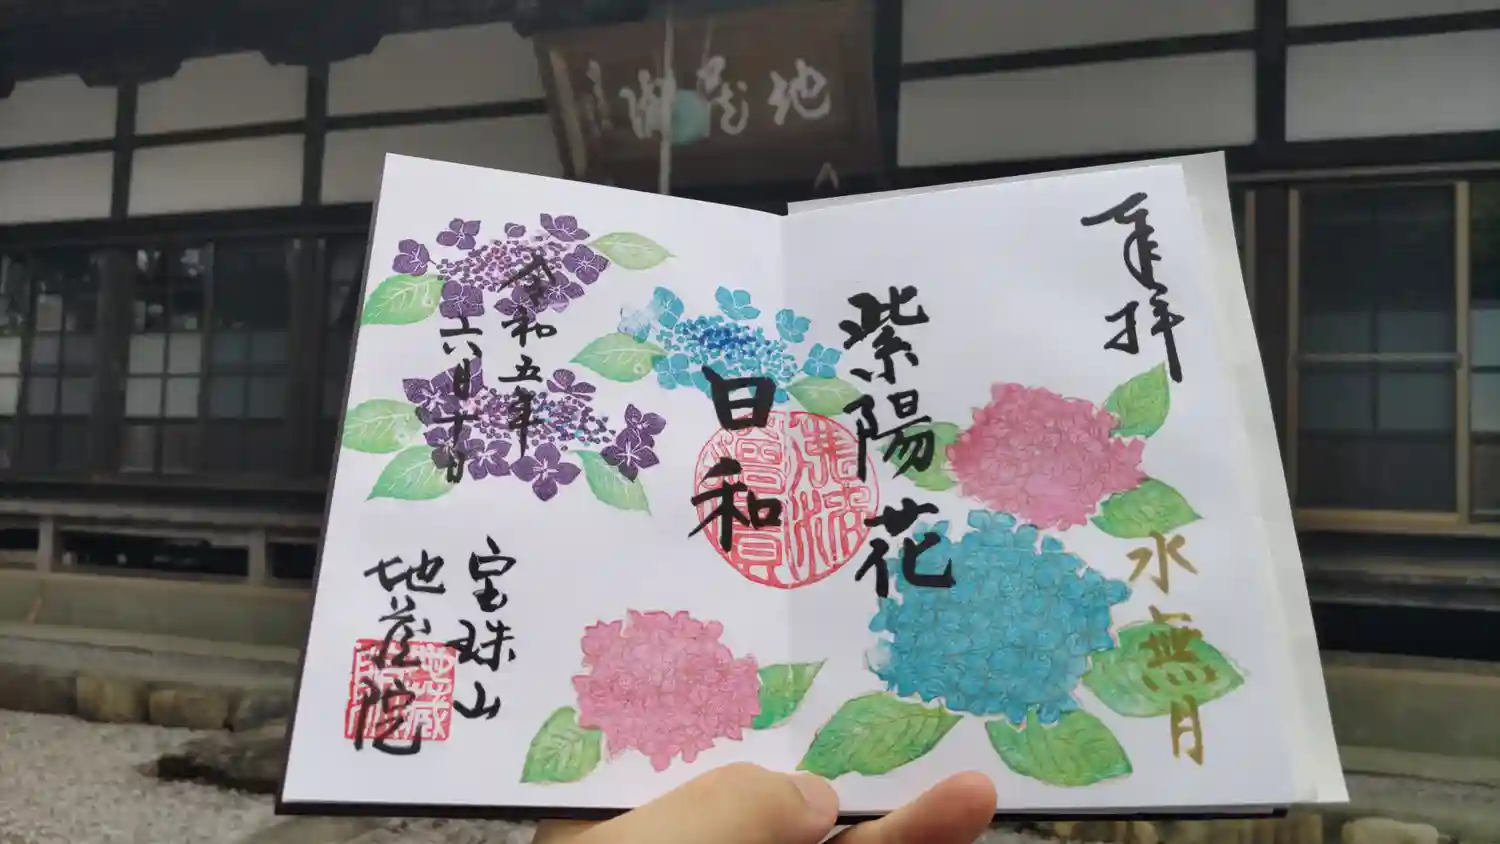 地蔵院
奉拝
水無月
紫陽花
日和
令和五年
六月十日
宝珠山
地蔵院